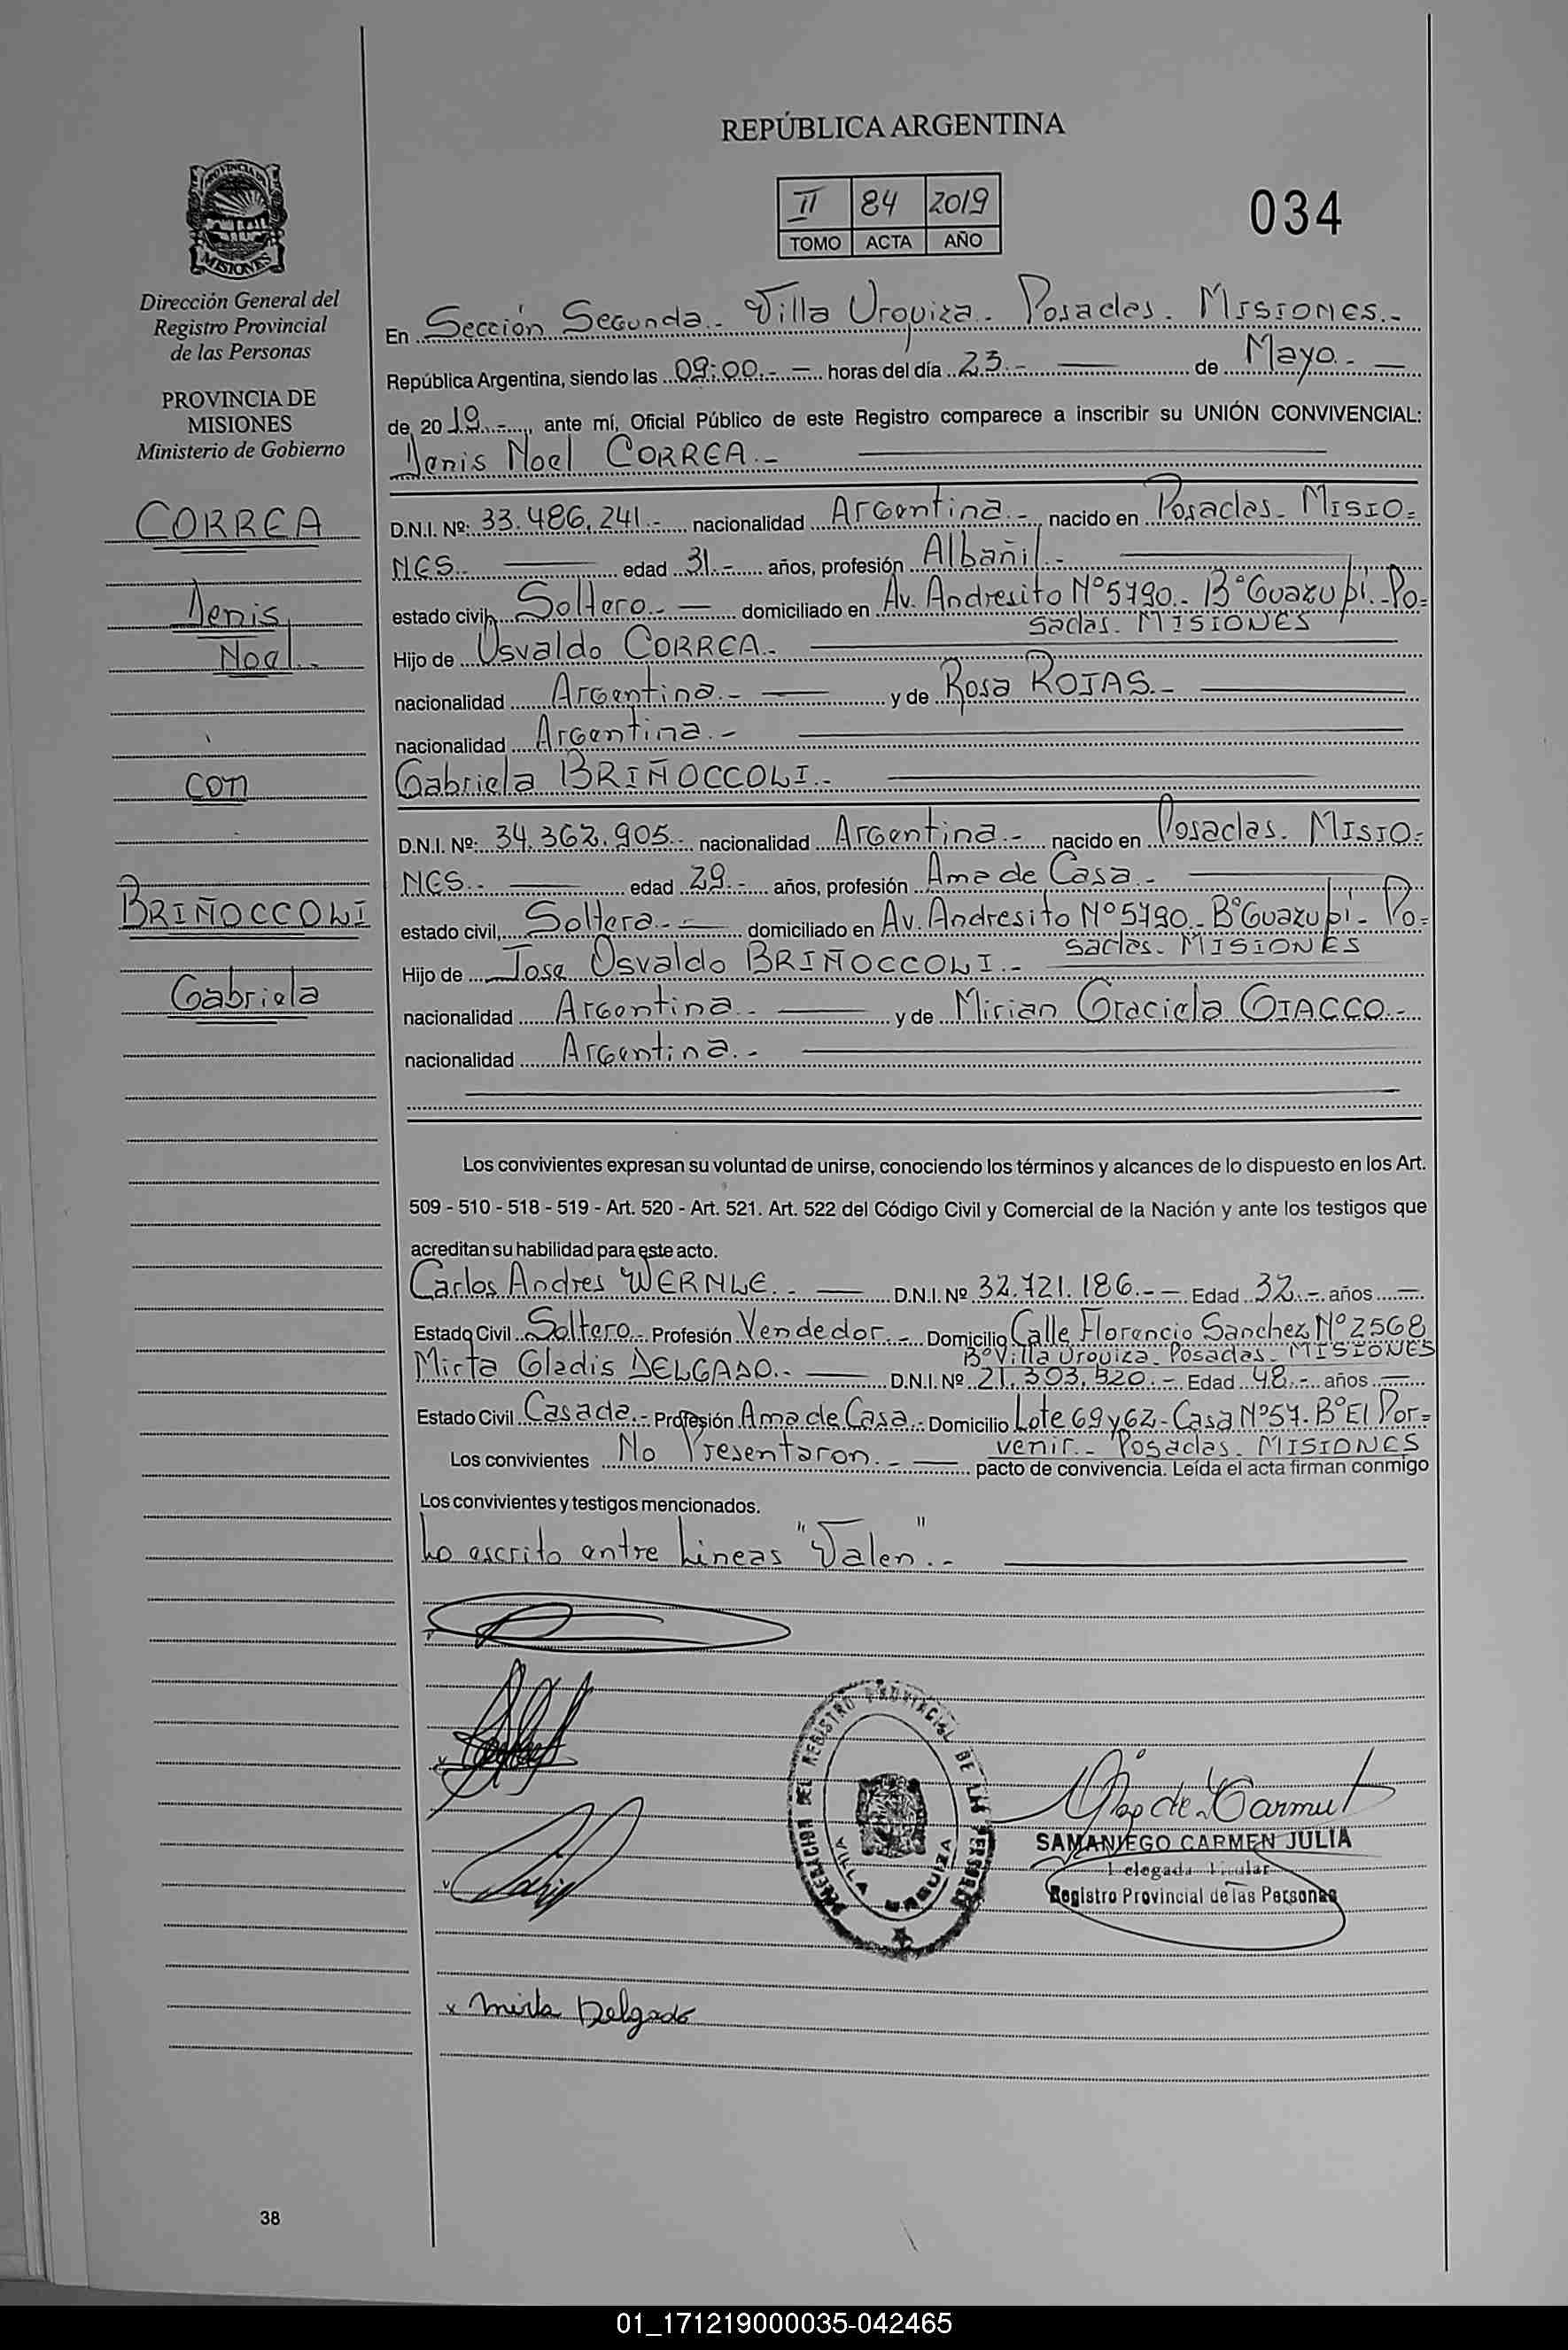 REPÚBLICA ARGENTINA
II 84 2019
TOMO ACTA AÑO
034
PROVINCIA DE
MISIONES
Dirección General del
Registro Provincial
de las Personas
PROVINCIA DE
MISIONES
Ministerio de Gobierno
CORREA
Denis
Noel.-
con
BRIÑOCCOLI
Gabriela
En Sección Segunda.- Villa Urquiza.- Posadas.- MISIONES.-
República Argentina, siendo las 09:00.- - horas del día 23.- — de Mayo.- —
de 2019.-, ante mí, Oficial Público de este Registro comparece a inscribir su UNIÓN CONVIVENCIAL:
Denis Noel CORREA.-
D.N.I. Nº: 33.486.241.- nacionalidad Argentina.-, nacido en Posadas.- MISIO=
NES.- — edad 31.- años, profesión Albañil.-
estado civil, Soltero.- — domiciliado en Av. Andresito Nº5790.- Bº Guazupi.- Po=
sadas.- MISIONES
Hijo de Osvaldo CORREA.-
nacionalidad Argentina.- — y de Rosa ROJAS.-
nacionalidad Argentina.-
Gabriela BRIÑOCCOLI.-
D.N.I. Nº: 34.362.905.- nacionalidad Argentina.- nacido en Posadas.- MISIO=
NES.- — edad 29.- años, profesión Ama de Casa.-
estado civil, Soltera.- — domiciliado en Av. Andresito Nº5790.- BºGuazupi.- Po=
sadas.- MISIONES
Hijo de Jose Osvaldo BRIÑOCCOLI.-
nacionalidad Argentina.- — y de Mirian Graciela GIACCO.-
nacionalidad Argentina.-
Los convivientes expresan su voluntad de unirse, conociendo los términos y alcances de lo dispuesto en los Art.
509 - 510 - 518 - 519 - Art. 520 - Art. 521. Art. 522 del Código Civil y Comercial de la Nación y ante los testigos que
acreditan su habilidad para este acto.
Carlos Andres WERNLE.- — D.N.I. Nº 32.721.186.- - Edad 32.- años —
Estado Civil Soltero.- Profesión Vendedor.- Domicilio Calle Florencio Sanchez Nº2568
Bº Villa Urquiza.- Posadas.- MISIONES
Mirta Gladis DELGADO.- — D.N.I. Nº 21.303.320.- Edad 48.- años —
Estado Civil Casada.- Profesión Ama de Casa.- Domicilio Lote 69 y 62.- Casa Nº57.- BºEl Por=
venir.- Posadas.- MISIONES
Los convivientes No Presentaron.- — pacto de convivencia. Leída el acta firman conmigo
Los convivientes y testigos mencionados.
Lo escrito entre Lineas "Valen".-
REGISTRO PROVINCIAL DE LAS PERSONAS
VILLA URQUIZA
SAMANIEGO CARMEN JULIA
Delegada Titular
Registro Provincial de las Personas
x Mirta Delgado
38
01_171219000035-042465